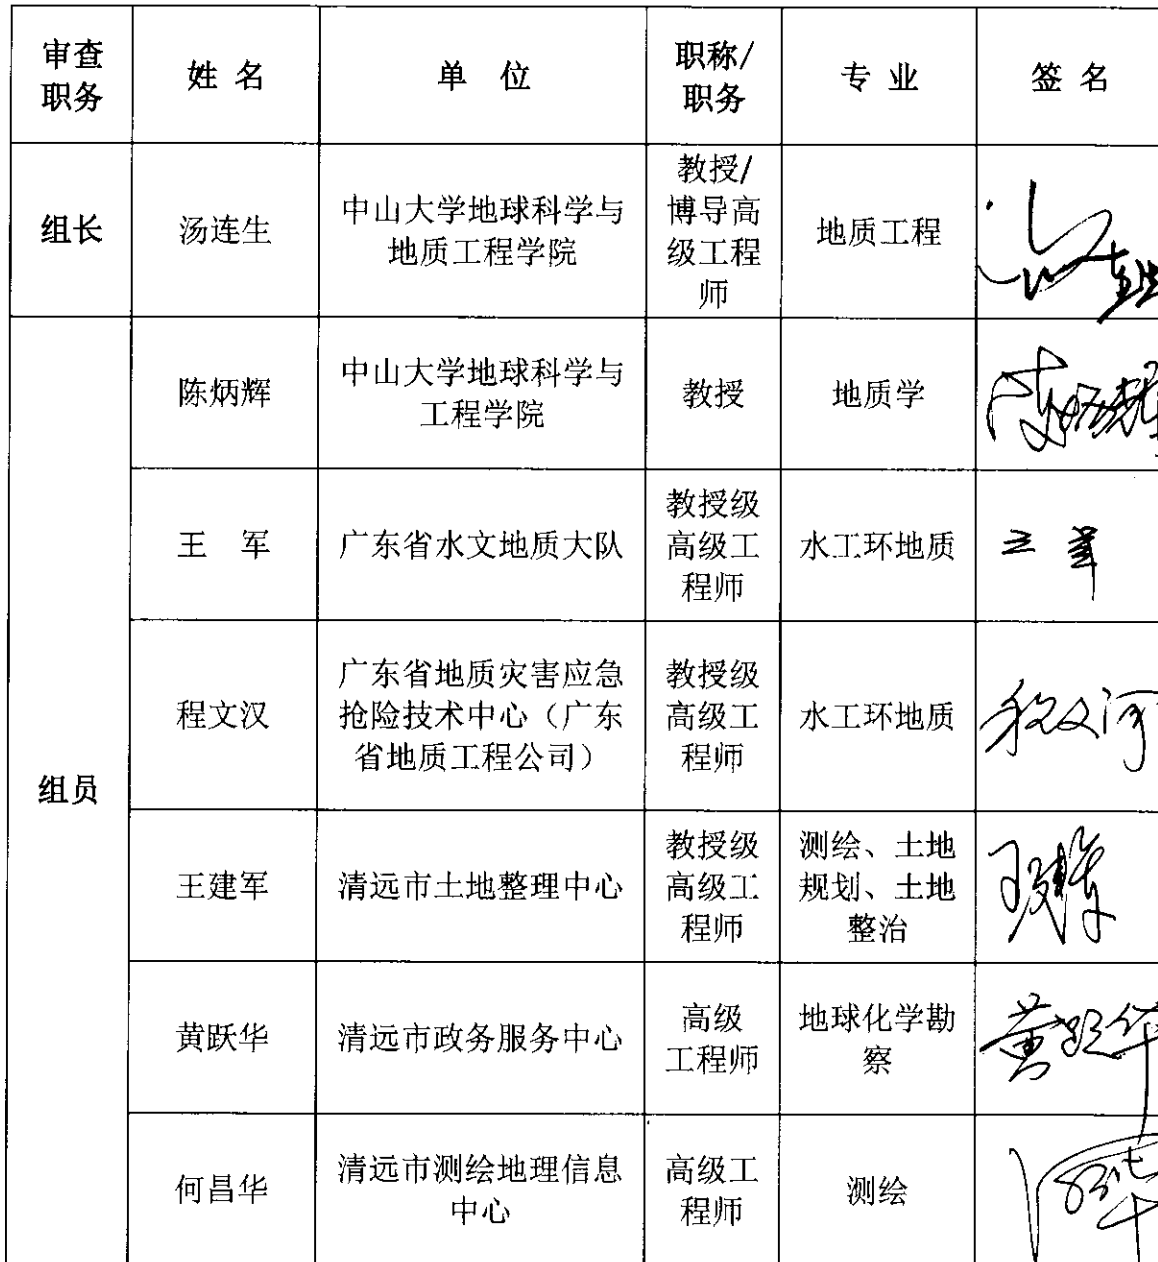 审查
职务
姓 名
单 位
职称/
职务
专 业
签 名
组长
汤连生
中山大学地球科学与
地质工程学院
教授/
博导高
级工程
师
地质工程
组员
陈炳辉
中山大学地球科学与
工程学院
教授
地质学
王 军
广东省水文地质大队
教授级
高级工
程师
水工环地质
王军
程文汉
广东省地质灾害应急
抢险技术中心（广东
省地质工程公司）
教授级
高级工
程师
水工环地质
王建军
清远市土地整理中心
教授级
高级工
程师
测绘、土地
规划、土地
整治
黄跃华
清远市政务服务中心
高级
工程师
地球化学勘
察
黄跃华
何昌华
清远市测绘地理信息
中心
高级工
程师
测绘